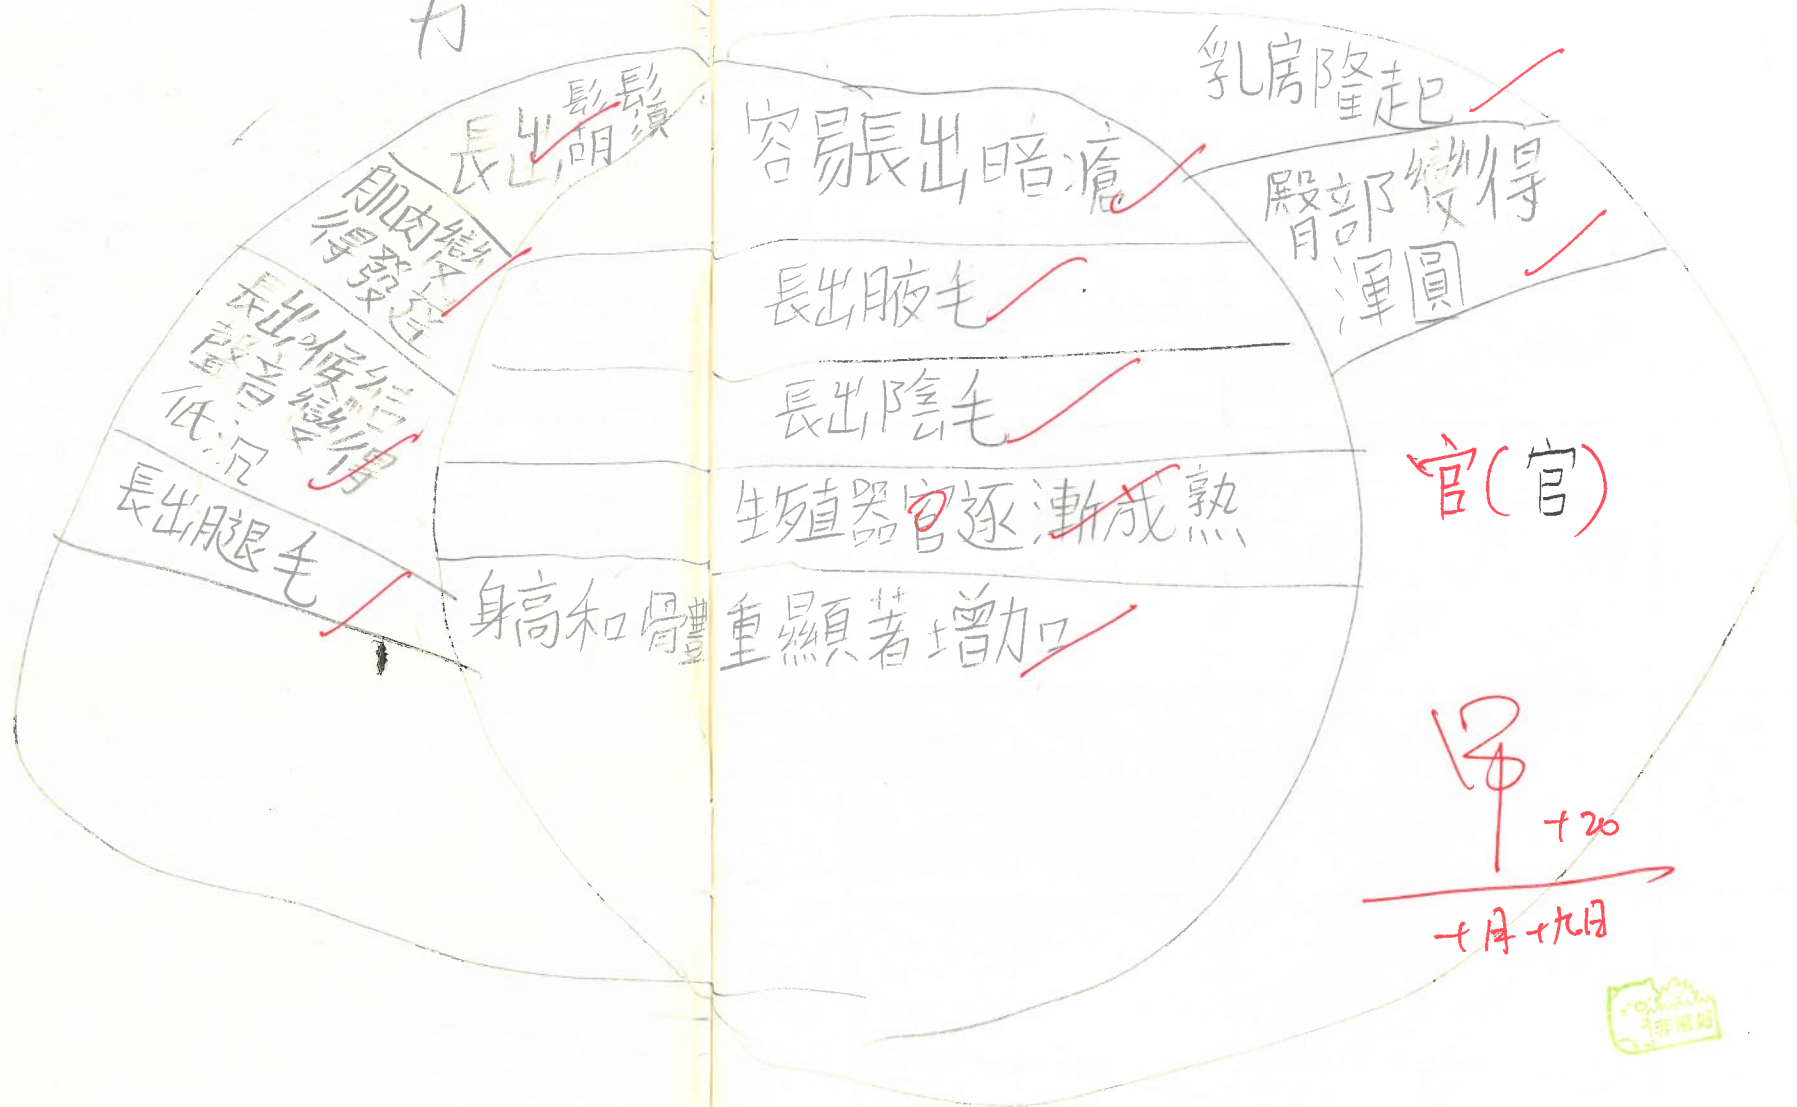 力
長出鬍鬚
肌肉變
得發達
長出喉結
聲音變得
低沉
長出腿毛
容易長出暗瘡
長出腋毛
長出陰毛
生殖器官逐漸成熟
身高和體重顯著增加
乳房隆起
臀部變得
渾圓
官(官)
+20
十月十九日
非常好